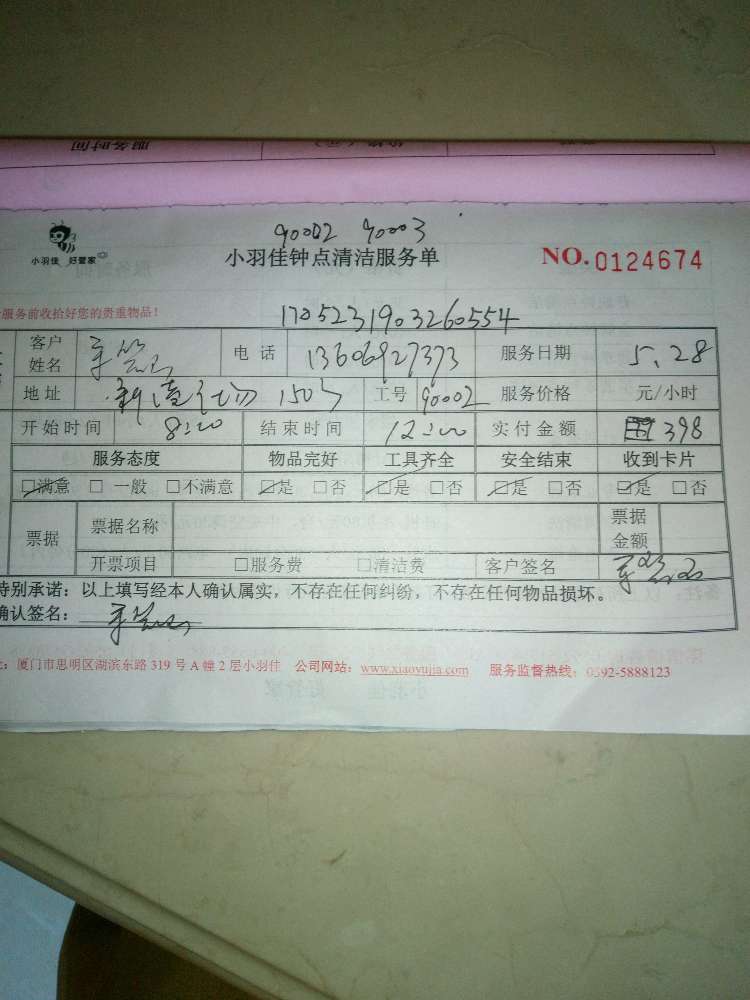 服务时间
90002 90003
小羽佳 好管家
小羽佳钟点清洁服务单
NO.0124674
服务前收拾好您的贵重物品!
1705231903260554
客户姓名 电话 13606927373 服务日期 5.28
地址 150号 工号 90002 服务价格 元/小时
开始时间 8:00 结束时间 12:00 实付金额 398
服务态度 物品完好 工具齐全 安全结束 收到卡片
□满意 □一般 □不满意 □是 □否 □是 □否 □是 □否 □是 □否
票据 票据名称 票据金额
开票项目 □服务费 □清洁费 客户签名
特别承诺:以上填写经本人确认属实,不存在任何纠纷,不存在任何物品损坏。
确认签名:
厦门市思明区湖滨东路 319 号 A 幢 2 层小羽佳 公司网站:www.xiaoyujia.com 服务监督热线:0592-5888123